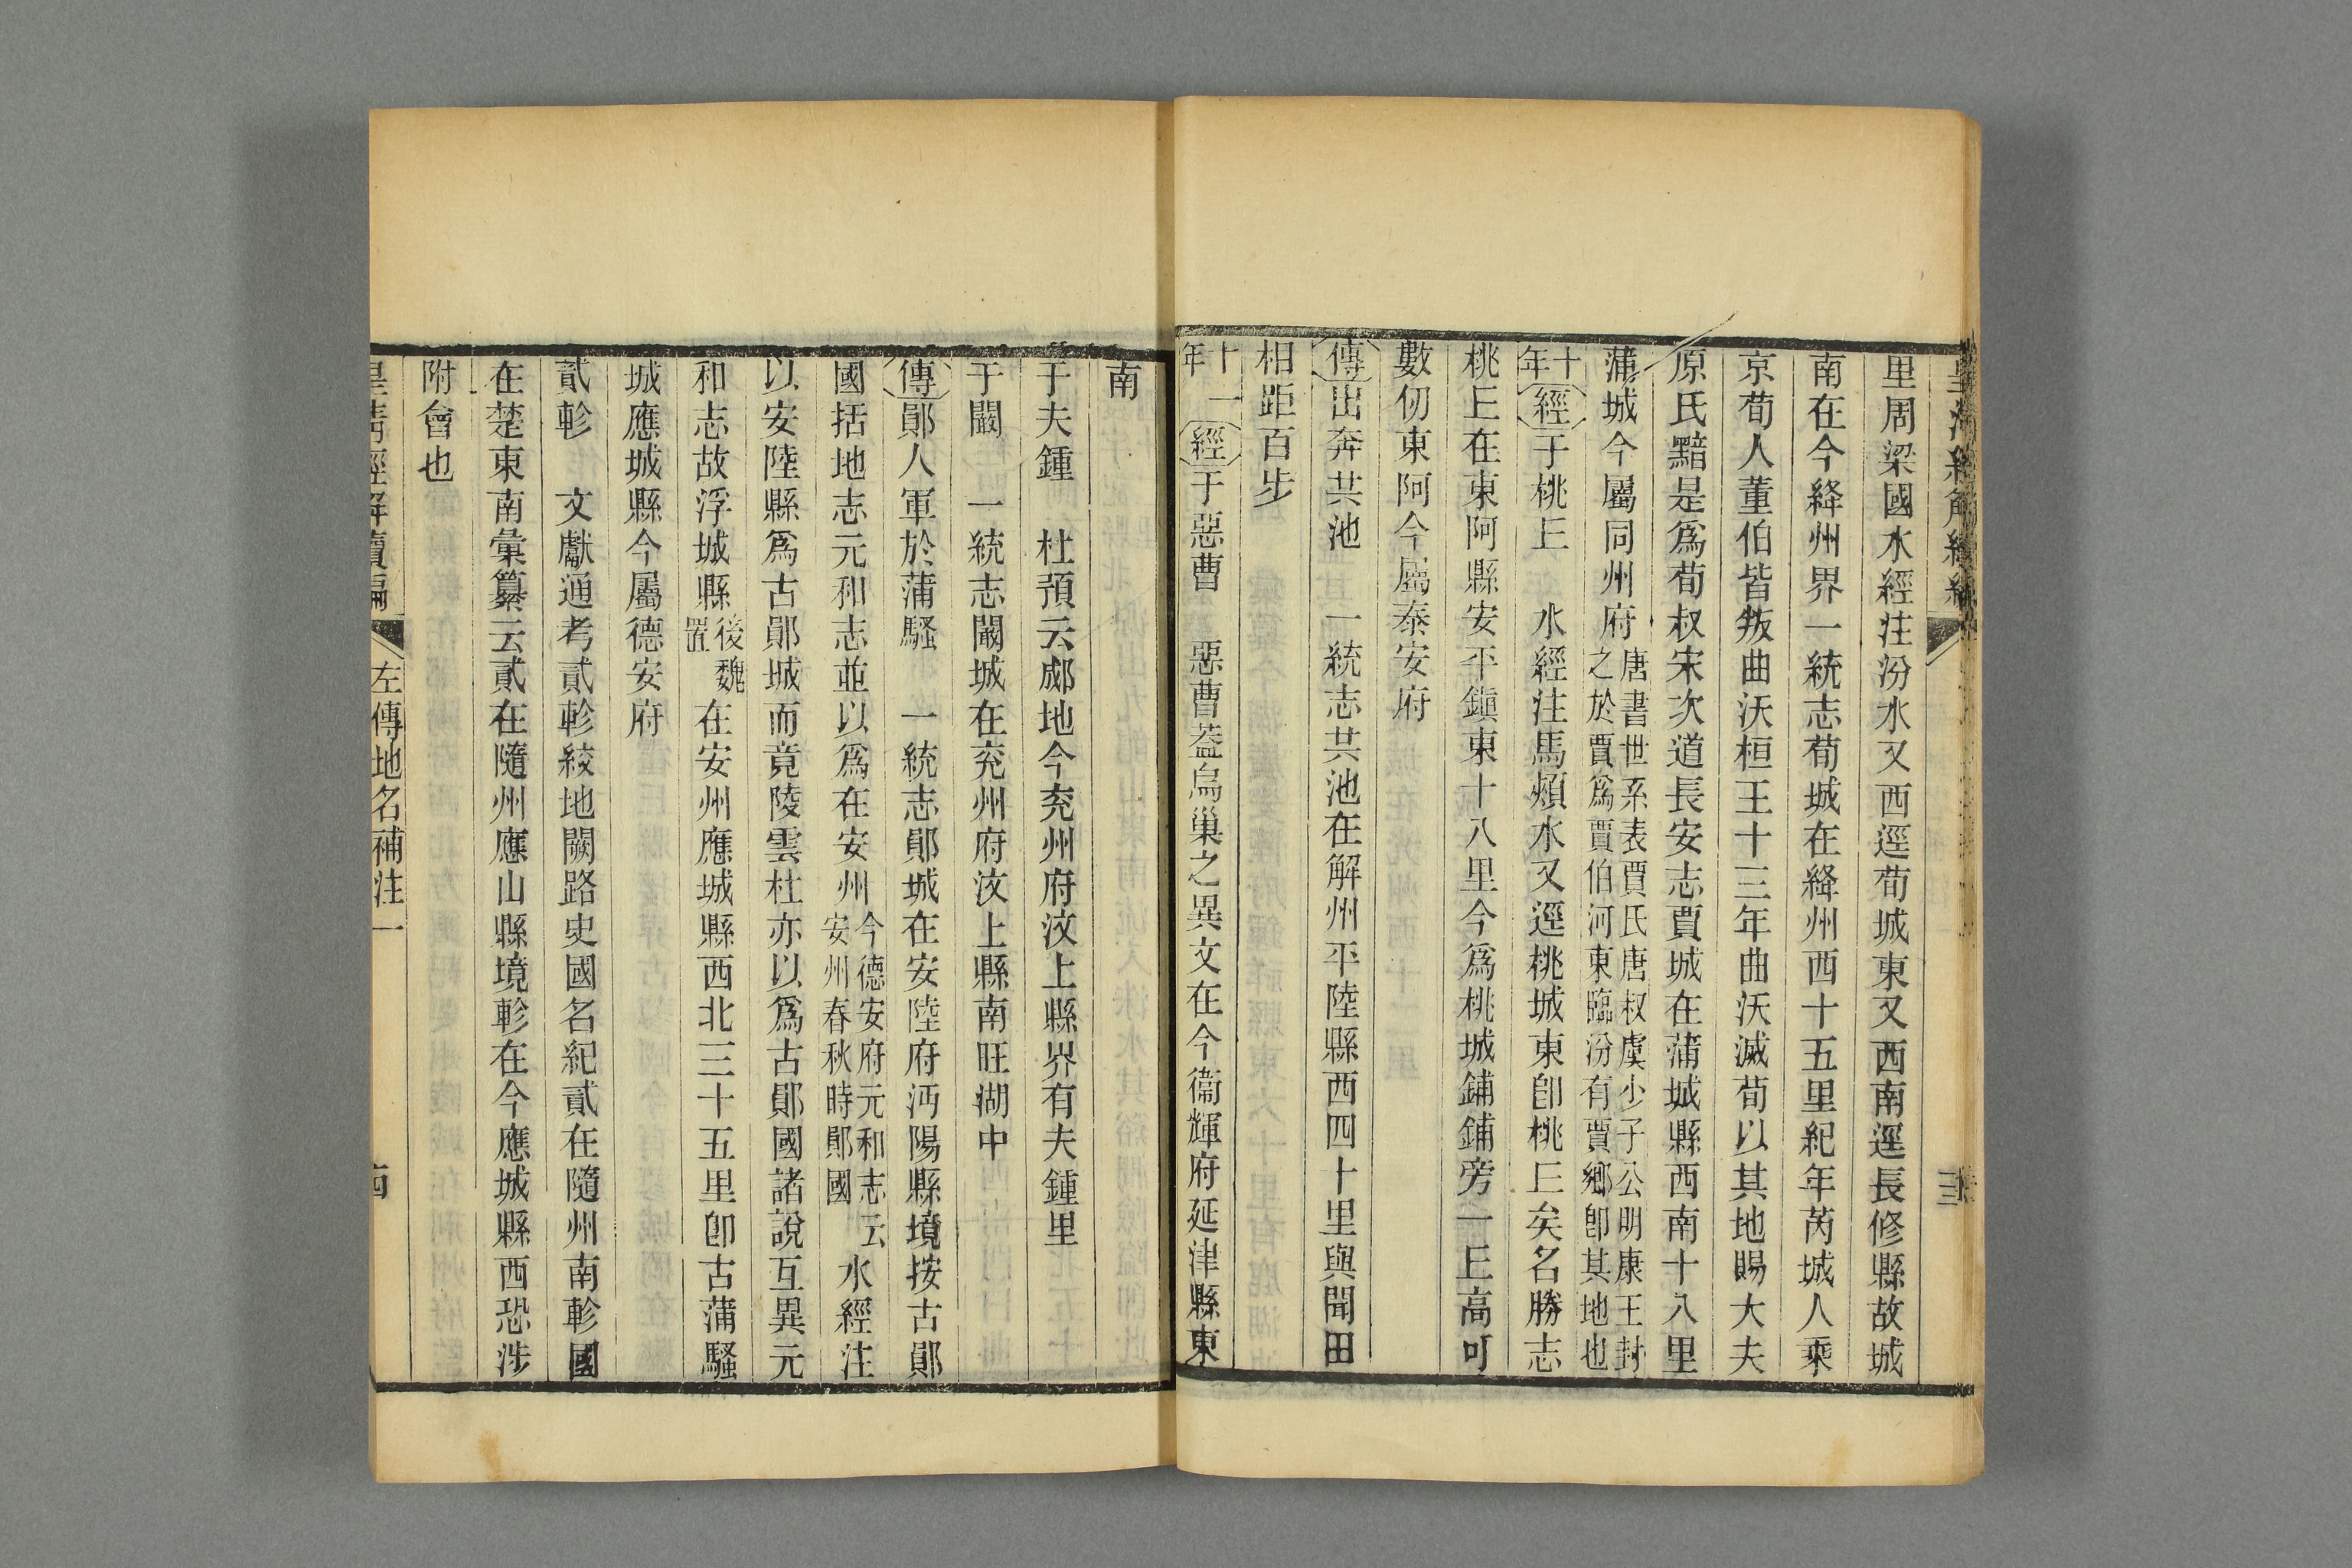 皇清經解續編
里周梁國水經注汾水又西逕荀城東又西南逕長修縣故城
南在今絳州界一統志荀城在絳州西十五里紀年芮城人乘
京荀人董伯皆叛曲沃桓王十三年曲沃滅荀以其地賜大夫
原氏黯是爲荀叔宋次道長安志賈城在蒲城縣西南十八里
蒲城今屬同州府唐書世系表賈氏唐叔虞少子公明康王封之於賈爲賈伯河東臨汾有賈鄉卽其地也
十年經于桃𠀉　水經注馬頰水又逕桃城東卽桃𠀉矣名勝志
桃𠀉在東阿縣安平鎭東十八里今爲桃城鋪鋪旁一𠀉高可
數仞東阿今屬泰安府
傳出奔共池　一統志共池在解州平陸縣西四十里與閒田
相距百步
十一年經于惡曹　惡曹葢烏巢之異文在今衞輝府延津縣東
南
于夫鍾　杜預云郕地今兖州府汶上縣界有夫鍾里
于闞　一統志闞城在兖州府汶上縣南旺湖中
傳鄖人軍於蒲騷　一統志鄖城在安陸府沔陽縣境按古鄖
國括地志元和志並以爲在安州今德安府元和志云安州春秋時鄖國水經注
以安陸縣爲古鄖城而竟陵雲杜亦以爲古鄖國諸說互異元
和志故浮城縣後魏置在安州應城縣西北三十五里卽古蒲騷
城應城縣今屬德安府
貳軫　文獻通考貳軫絞地闕路史國名紀貳在隨州南軫國
在楚東南彙纂云貳在隨州應山縣境軫在今應城縣西恐涉
附會也
皇淸經解續編
左傳地名補注一